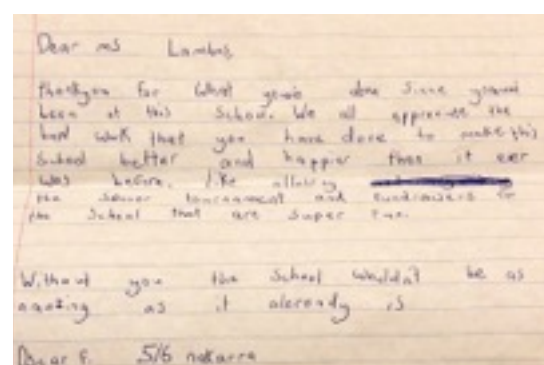 Dear ms Lambos,
thankyou for what youve done since youve
been at this school. We all appreciate the
hard work that you have done to make this
school better and happier then it ever
was before, like allowing
the soccer tournament and fundraisers for
the school that are super fun.
Without you the school wouldn't be as
amazing as it aleready is
5/6